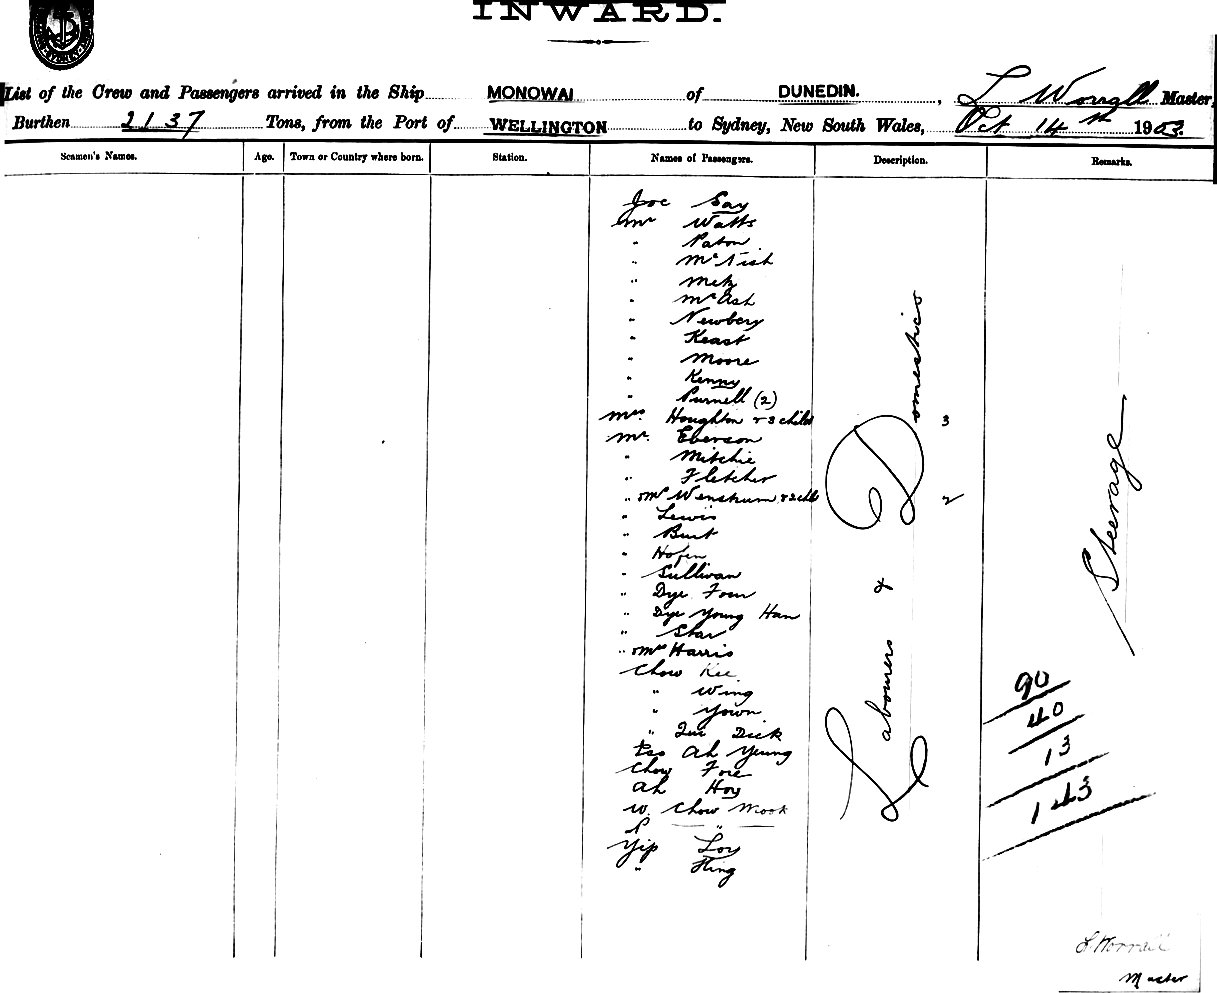 INWARD.
List of the Crew and Passengers arrived in the Ship MONOWAI of DUNEDIN., L Worrall Master,
Burthen 2137 Tons, from the Port of WELLINGTON to Sydney, New South Wales, Oct 14th 1903.
Seamen's Names. Age. Town or Country where born. Station. Names of Passengers. Description. Remarks.
Joe Gay
Mr Watts
" Paton
" McNish
" Metz
" McAsh
" Newbery
" Keast
" Moore
" Kenny
" Purnell (2)
Mrs Houghton & 3 childn 3
Mr. Eberson
" Mitchie
" Fletcher
" & Mrs Wenstrum & 2 chld 2
" Lewis
" Burt
" Hofen
" Sullivan
" Dye Foon
" Dye Young Han
" Star
" & Mrs Harris
Chow Kee
" Wing
" Yown
" Dick
Ah Young
Chow Fore
Ah Hoy
W. Chow Mook
P — " —
Yip Loy
" Hing
Labourers & Domestics
Steerage
90
40
13
143
L Worrall
Master